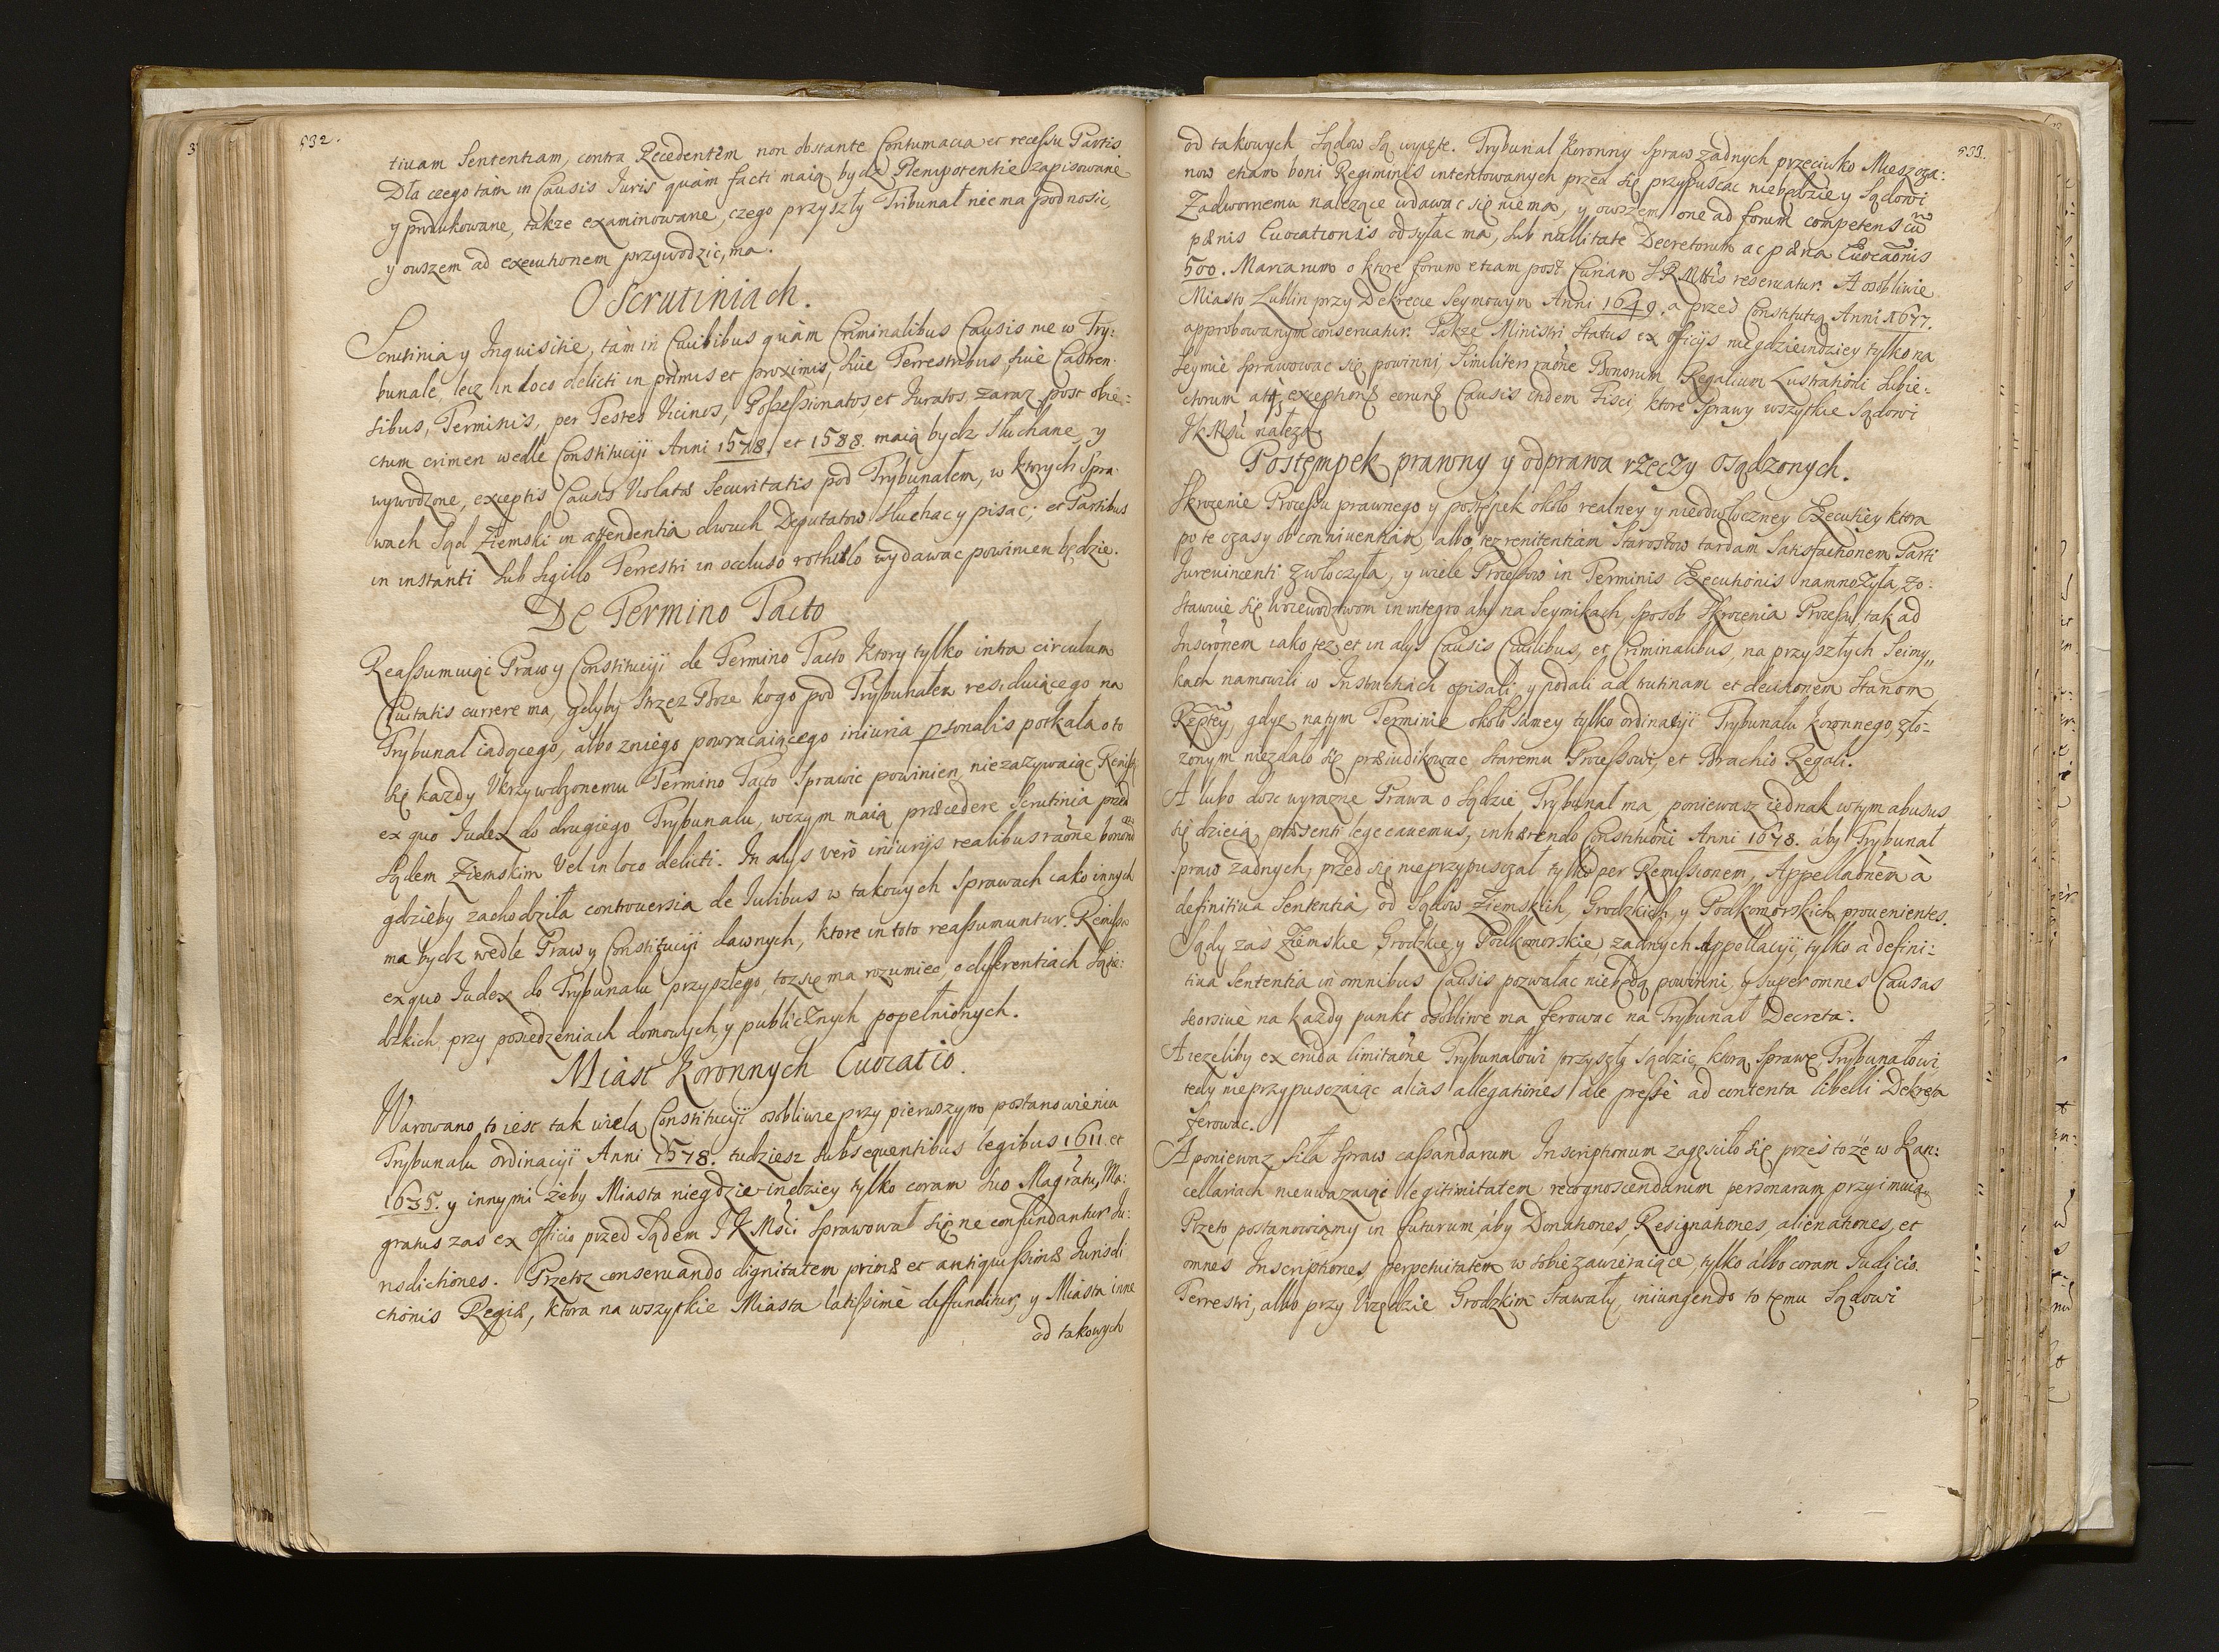 532.
tiuam Sententiam, contra Recedentem non obstante Contumacia et recessu Partis
Dla czego tàm in Causis Iuris quàm facti maią bydź Plenipotentie zapisowane
y produkowane, także examinowane, czego przyszły Tribunał nie ma podnosic,
y owszem ad executionem przywodzic, ma.
O Scrutiniach.
Scrutinia y Inquisitie, tàm in Ciuibibus quàm Criminalibus Causis nie w Try:
bunale, lecz in loco delicti in primis et proximis, siue Terrestribus siue Castren
sibus, Terminis, per Testes Vicinos, Possessionatos, et Iuratos, zaraz post obie:
ctum crimen wedle Constitucyi Anni 1578. et 1588. maią bydz słuchane, y
wywodzone, exceptis Causis Violatæ Securitatis pod Trybunałem, w ktorych Spra
wach Sąd Ziemski in assendentia dwuch Deputatow słuchac y pisac; et Partibus
in instanti sub Sigillo Terrestri in occluso rothulo wydawac powinien będzie.
De Termino Tacto
Reassumuiąc Prawy Constitucyi de Termino Tacto Ktory tylko intra circulum
Ciuitatis currere ma, gdyby strzez Boze kogo pod Trybunałem residuiącego na
Trybunał iadącego, albo zniego powracaiącego iniuria psonalis potkała oto
się kazdy Vkrzywdzonemu Termino Tacto Sprawic powinien, niezazywaiąc Remiss
ex quo Iudex do drugiego Trybunalu, wczym maią præcedere Scrutinia przed
Sądem Ziemskim Vel in loco delicti. In alys verò iniurijs realibus raõne bonorũ
gdzieby zachodziła controuersia de Iuribus w takowych Sprawach iako innych
ma bydz wedle Prawy Constitucyi dawnych, ktore in toto reassumuntur. Remissa
ex quo Iudex do Trybunalu przyszłego, toz się ma rozumiec, o differentiach Sąsie:
dzkich przy posiedzeniach domowych, y publicznych popełnionych.
Miast Koronnych Euocatio.
Warowano to iest tak wielą Constitucyi osobliwie przy pierwszym postanowieniu
Trybunalu ordinacyi Anni 1578. tudziesz subsequentibus legibus 1611. et
1635. y innymi żeby Miasta niegdzie indziey tylko coram suo Magratu, Ma:
gratus zas ex Officio przed Sądem JKMsci Sprawował się ne confundantur Iu:
risdictiones. Przetoz conseruando dignitatem primæ et antiquissimæ Iurisdi
ctionis Regiæ, ktora na wszytkie Miasta latissimè diffunditur, y Miasta inne
od takowych
533.
od takowych Sądow są wyięte. Trybunał Koronny Spraw żadnych przeciwko Mieszcza:
now etiam boni Regiminis intentowanych przed się przypuscac niebędzie y Sądowi
Zadwornemu nalezące wdawac się niema, y owszem one ad forum competens cũ
pænis Euocationis odsyłac ma, sub nullitate Decretorum ac pæna Euocaõnis
500. Marcarum o ktore forum etiam post Curiam SRMttis reseruatur. A osobliwie
Miasto Lublin przy Dekrecie Seymowym Anni 1649. a przed Constitutią Anni 1677.
approbowanym conseruatur. Także Ministri Status ex Officijs niegdzieindziey tylko na
Seymie Sprawowac się powinni, Similiter raõne Bonorum Regalium Lustrationi Subie:
ctorum atq; exceptionæ eorunq Causis indem Fisci, ktore Sprawy wszytkie Sądowi
JKMsci należą.
Postęmpek prawny y odprawa rzeczy osądzonych.
Skrocenie Processu prawnego y postępek około realney y nieodwłoczney Execuciey ktora
po te czasy ob conniuentiam, albo tez renitentiam Starostow tardam Satisfactionem Parti
Iureuincenti zwłoczyła, y wiele Processow in Terminis Executionis namnożyła, zo:
stawuie się Woiewodztwom in integro aby na Seymikach, sposob Skrocenia Processu, tak ad
Inscrõnem iako tez et in alys Causis Ciuilibus, et Criminalibus, na przyszłych Seimy„
kach namowili w Instructiach opisali, y podali ad trutinam et decisionem Stanom
Rzptey, gdyż natym Terminie około samey tylko ordinatyi Trybunalu Koronnego, zło-
żonym niezdało się præiudikowac staremu Processowi, et Brachio Regali.
A lubo dosc wyrazne Prawa o Sądzie Trybunał ma, poniewasz iednak wtym abusus
się dzieią, præsenti lege cauemus, inhærendo Constitutioni Anni 1678. áby Trybunał
spraw żadnych, przed się nieprzypusczał tylko per Remissionem, Appellaõnem à
definitiua Sententia, od Sądow Ziemskich, Grodzkich, y Podkomorskich prouenientes.
Sądy zaś Ziemskie, Grodzkie, y Podkomorskie, żadnych Appellacyi, tylko à defini:
tiua Sententia in omnibus Causis pozwalac niebędą powinni, y super omnes Causas
seorsiue na każdy punkt osobliwe ma ferowac na Trybunał Decreta.
A iezeliby ex cruda limitaõne Trybunałowi przyszło sądzic, ktorą Sprawę Trybunałowi,
tedy nieprzypusczaiąc alias allegationes, ale pressè ad contenta libelli Dekreta
ferowac.
A poniewaz siła Spraw cassandarum Inscriptionum zagęsciło się przes to że w Kan:
cellariach nieuwazaiąc legitimitatem recognoscendarum personarum przyimuią,
Przeto postanowiamy in futurum, áby Donationes, Resignationes, alienationes, et
omnes Inscriptiones perpetuitatem w sobie zawieraiące, tylko álbo coram Iudicio
Terrestri, albo przy Urzędzie Grodzkim Stawały, iniungendo to temu Sądowi